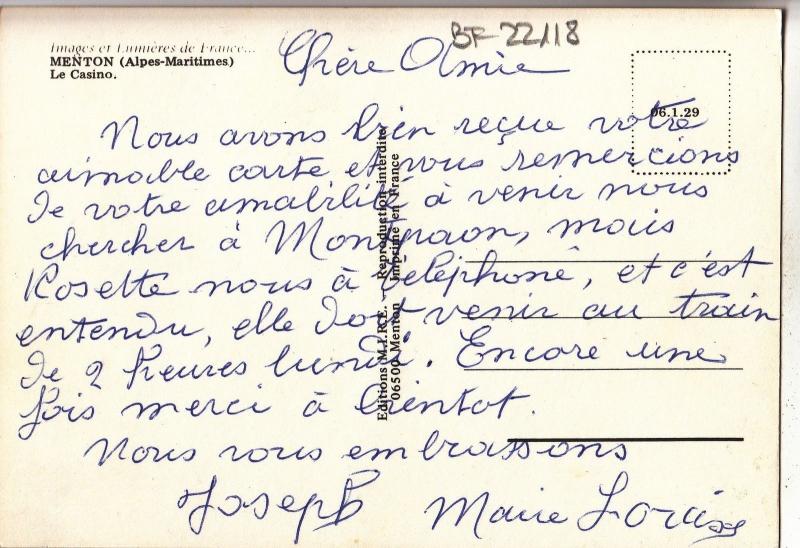 BF-22118
Images et Lumières de France...
MENTON (Alpes-Maritimes)
Le Casino.
06.1.29
Editions M.I.R.E. - Reproduction interdite
06500 Menton Imprimé en France
Chère Amie
Nous avons bien reçue votre
aimable carte et vous remercions
de votre amabilité à venir nous
chercher à, mais
Rosette nous à téléphoné, et c'est
entendu, elle doit venir au train
de 2 heures lundi. Encore une
fois merci à bientot.
Nous vous embrassons
Joseph Marie Louise